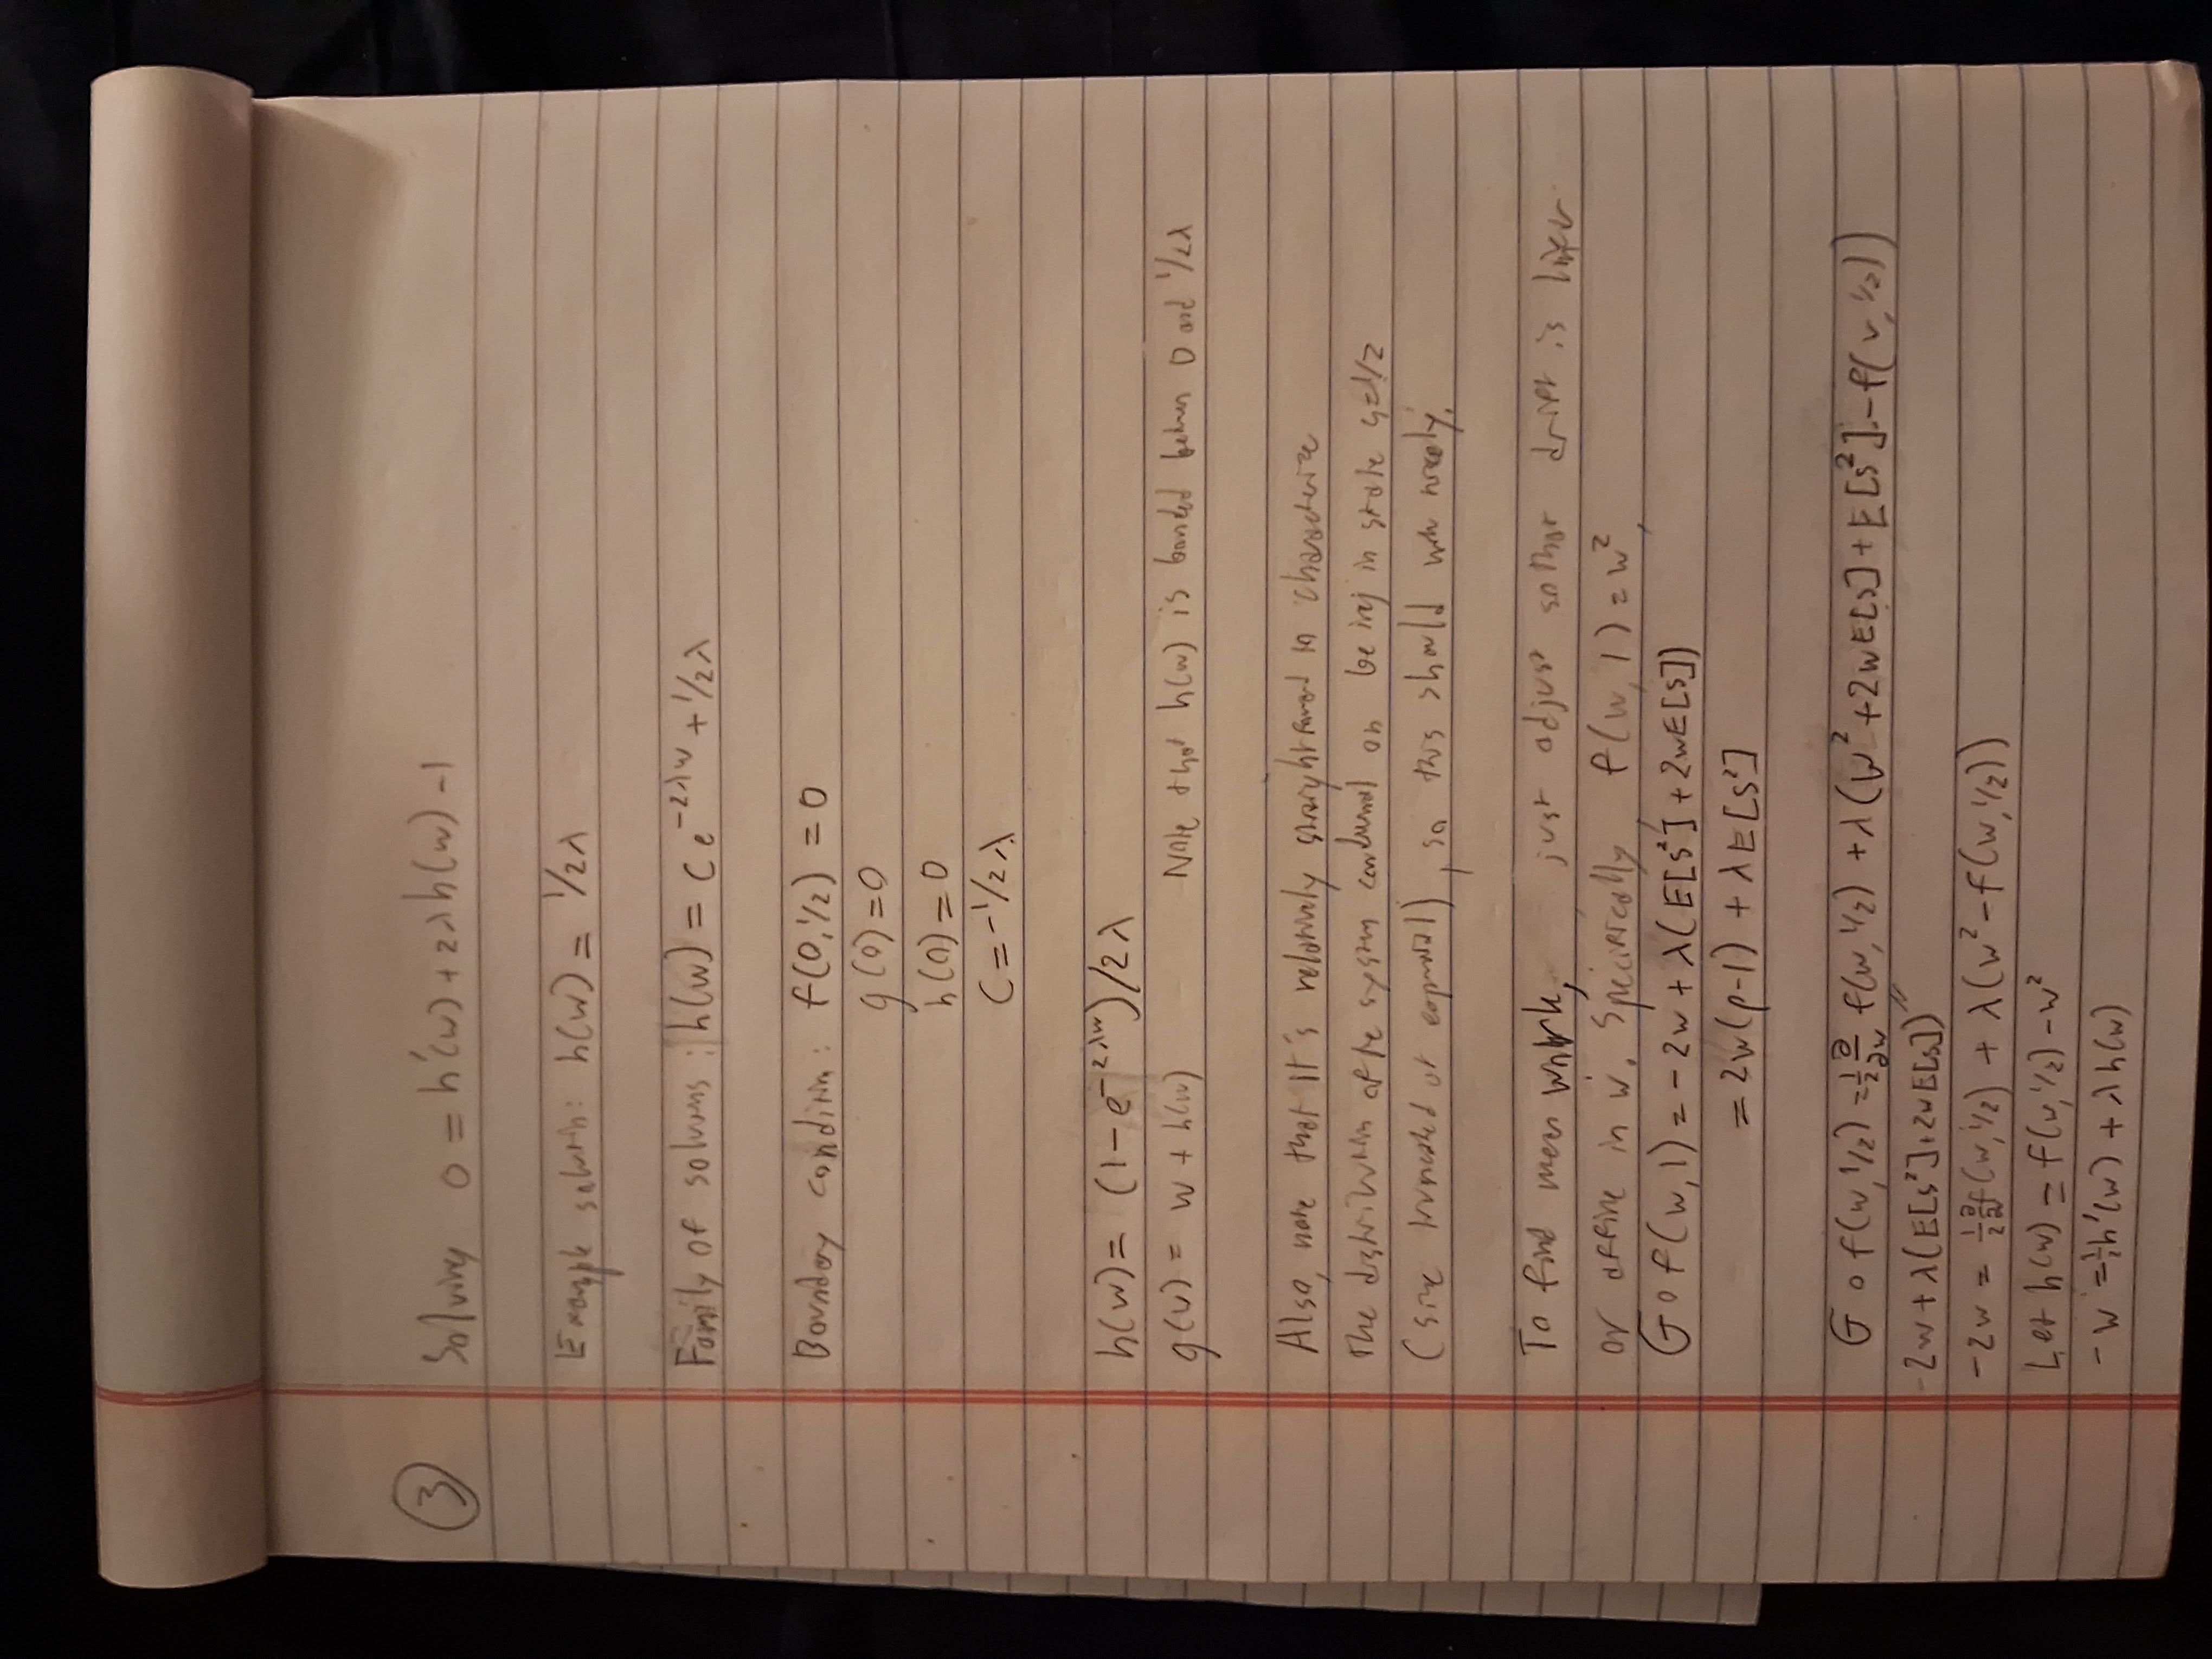 ③ Solving 0 = h'(w) + 2λh(w) - 1
Example solutn: h(w) = 1/2λ
Family of solutions: h(w) = Ce^{-2λw} + 1/2λ
Boundary condition: f(0, 1/2) = 0
g(0) = 0
h(0) = 0
C = -1/2λ
h(w) = (1 - e^{-2λw})/2λ
g(w) = w + h(w) Note that h(w) is bounded between 0 and 1/2λ
Also, note that it's relatively straightforward to characterize
the distribution of the system conditional on being in state s=1/2
(size truncated at), so this should work nicely.
To find mean work, just adjust so that drift is linear
or affine in w. Specifically, f(w, 1) = w²,
G∘f(w, 1) = -2w + λ(E[S²] + 2wE[S])
= 2w(ρ-1) + λE[S²]
G∘f(w, 1/2) = ½ ∂/∂w f(w, 1/2) + λ(w² + 2wE[S] + E[S²] - f(w, 1/2))
-2w + λ(E[S²] + 2wE[S]) "
-2w = ½ ∂/∂w f(w, 1/2) + λ(w² - f(w, 1/2))
Let h(w) = f(w, 1/2) - w²
-w = ½h'(w) + λh(w)